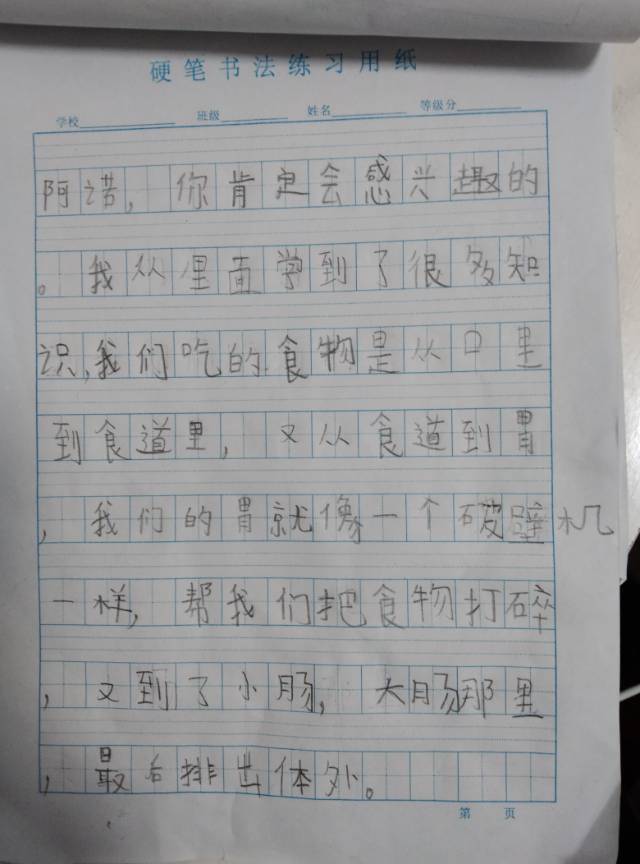 硬笔书法练习用纸
学校 班级 姓名 等级分
阿诺，你肯定会感兴趣的
。我从里面学到了很多知
识，我们吃的食物是从口里
到食道里，又从食道到胃
，我们的胃就像一个破壁机
一样，帮我们把食物打碎
，又到了小肠，大肠那里
，最后排出体外。
第 页